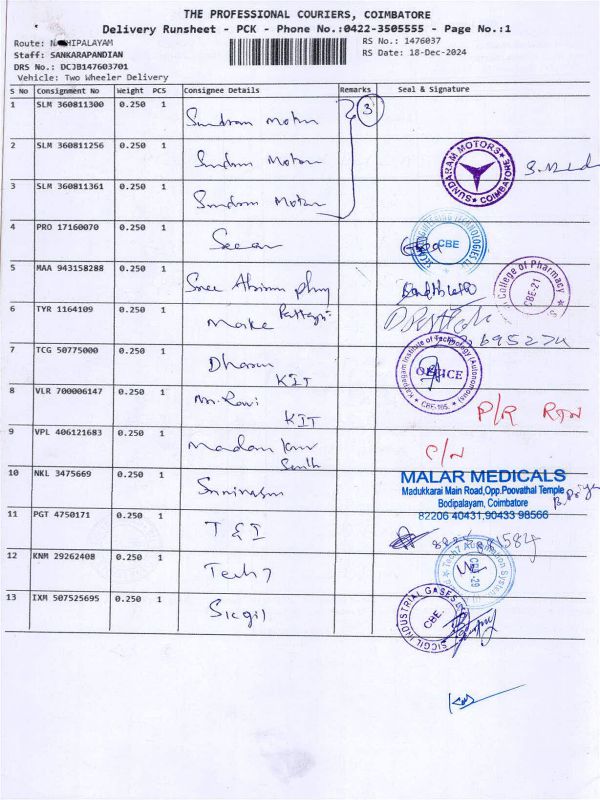 THE PROFESSIONAL COURIERS, COIMBATORE
Delivery Runsheet - PCK - Phone No.:0422-3505555 - Page No.:1
Route: HIPALAYAM
RS No.: 1476037
Staff: SANKARAPANDIAN
RS Date: 18-Dec-2024
DRS No.: DCJB147603701
Vehicle: Two Wheeler Delivery
S No Consignment No Weight PCS Consignee Details Remarks Seal & Signature
1 SLM 360811300 0.250 1 Sundram Motor 3
2 SLM 360811256 0.250 1 Sundram Motor
SUNDARAM MOTORS COIMBATORE
3 SLM 360811361 0.250 1 Sundram Motor
4 PRO 17160070 0.250 1
CBE
5 MAA 943158288 0.250 1 Sree Abirami phy
College of Pharmacy CBE-21
6 TYR 1164109 0.250 1
7 TCG 50775000 0.250 1 Dharun KIT
Kalaignar Institute of Technology (Autonomous) OFFICE CBE-105.
8 VLR 700006147 0.250 1 Mr. Ravi KIT P/R RTN
9 VPL 406121683 0.250 1 Madan C/N
10 NKL 3475669 0.250 1 Srinivasan
MALAR MEDICALS
Madukkarai Main Road,Opp.Poovathal Temple
Bodipalayam, Coimbatore
82206 40431,90433 98566
B. Priya
11 PGT 4750171 0.250 1 T & I
12 KNM 29262408 0.250 1 Tech 7
Tech7 Automation System
13 IXM 507525695 0.250 1 Sicgil
SICGIL INDUSTRIAL GASES CBE.